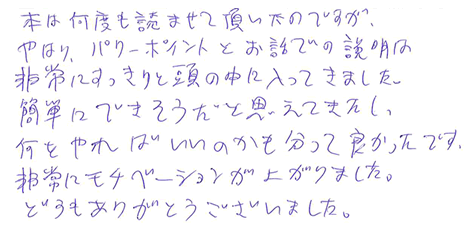 本は何度も読ませて頂いたのですが、
やはり、パワーポイントとお話での説明は
非常にすっきりと頭の中に入ってきました。
簡単にできそうだと思えてきたし、
何をやればいいのかも分って良かったです。
非常にモチベーションが上がりました。
どうもありがとうございました。